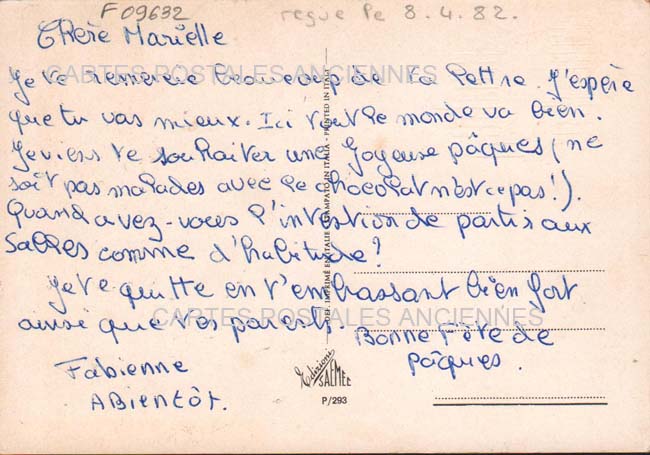 F09632
reçue le 8.4.82.
Chère Marielle
CARTES POSTALES ANCIENNES
Je te remercie beaucoup de ta lettre. J'espère
que tu vas mieux. Ici tout le monde va bien.
Je viens te souhaiter une Joyeuse pâques (ne
soit pas malades avec le chocolat n'est ce pas!).
Quand avez-vous l'intention de partir aux
Salles comme d'habitude?
Je te quitte en t'embrassant bien fort
CARTES POSTALES ANCIENNES
ainsi que tes parents.
Bonne Fête de
pâques.
Fabienne
ABientôt.
IMPRIMÉ EN ITALIE - STAMPATO IN ITALIA - PRINTED IN ITALY
Edizioni
SAEMEC
P/293